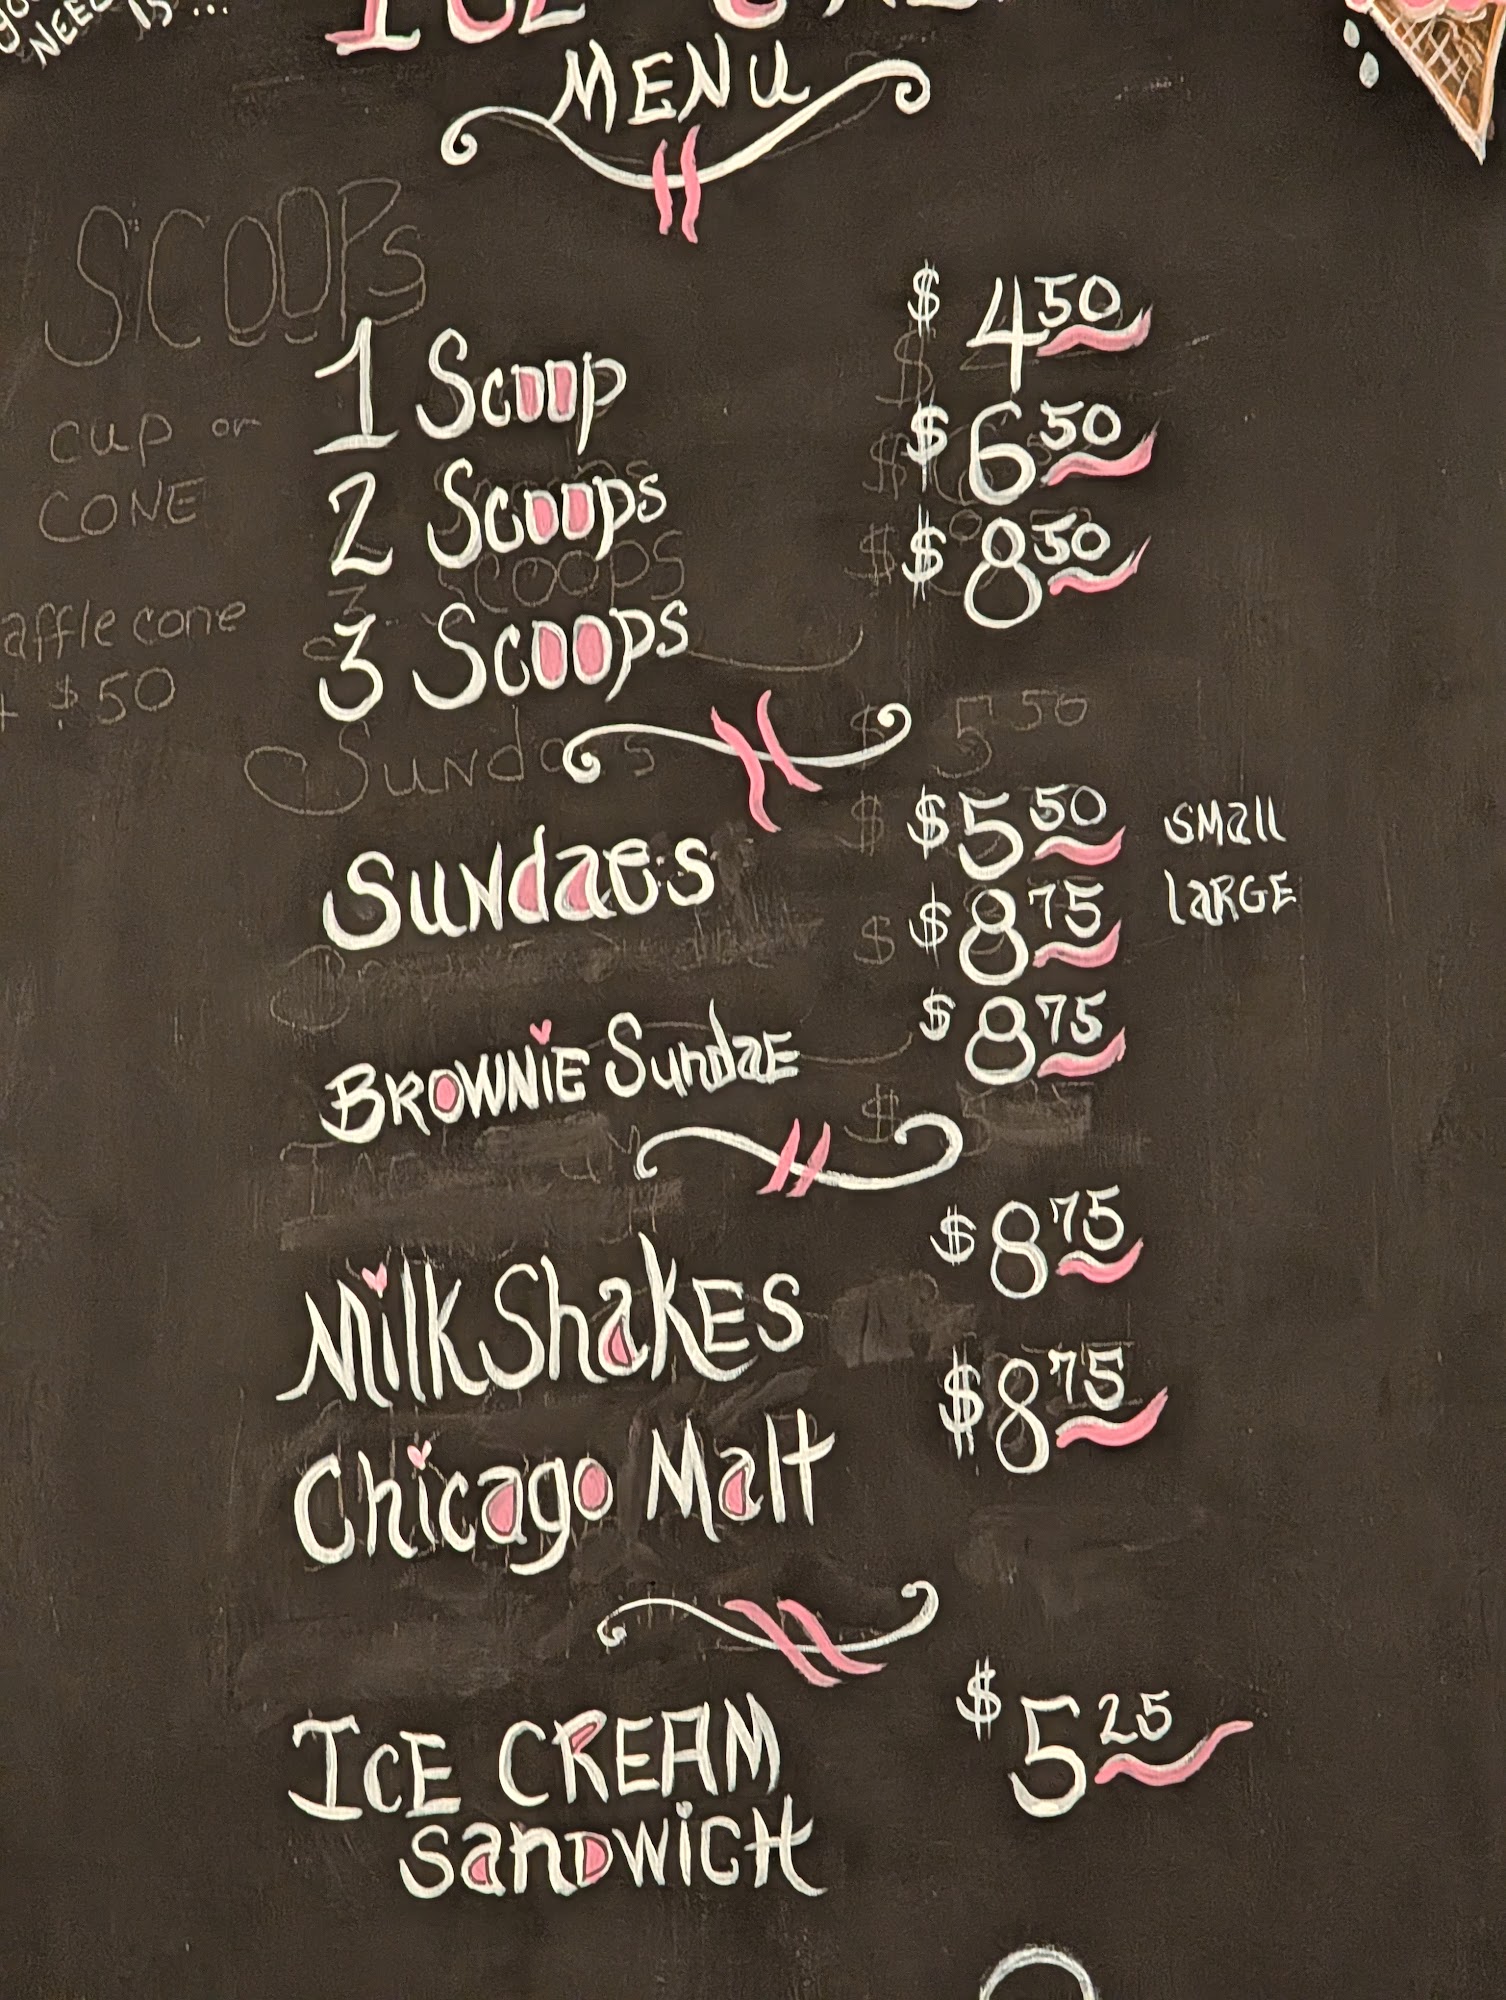 NEED IS ...
MENU
SCOOPS
1 Scoop $4.50
cup or
CONE
2 Scoops $6.50
SCOOPS
3 Scoops $8.50
cone
$.50
Sundaes $5.50
Sundaes $5.50 small
$8.75 LARGE
BROWNIE Sundae $8.75
MilkShakes $8.75
Chicago Malt $8.75
ICE CREAM $5.25
SANDWICH